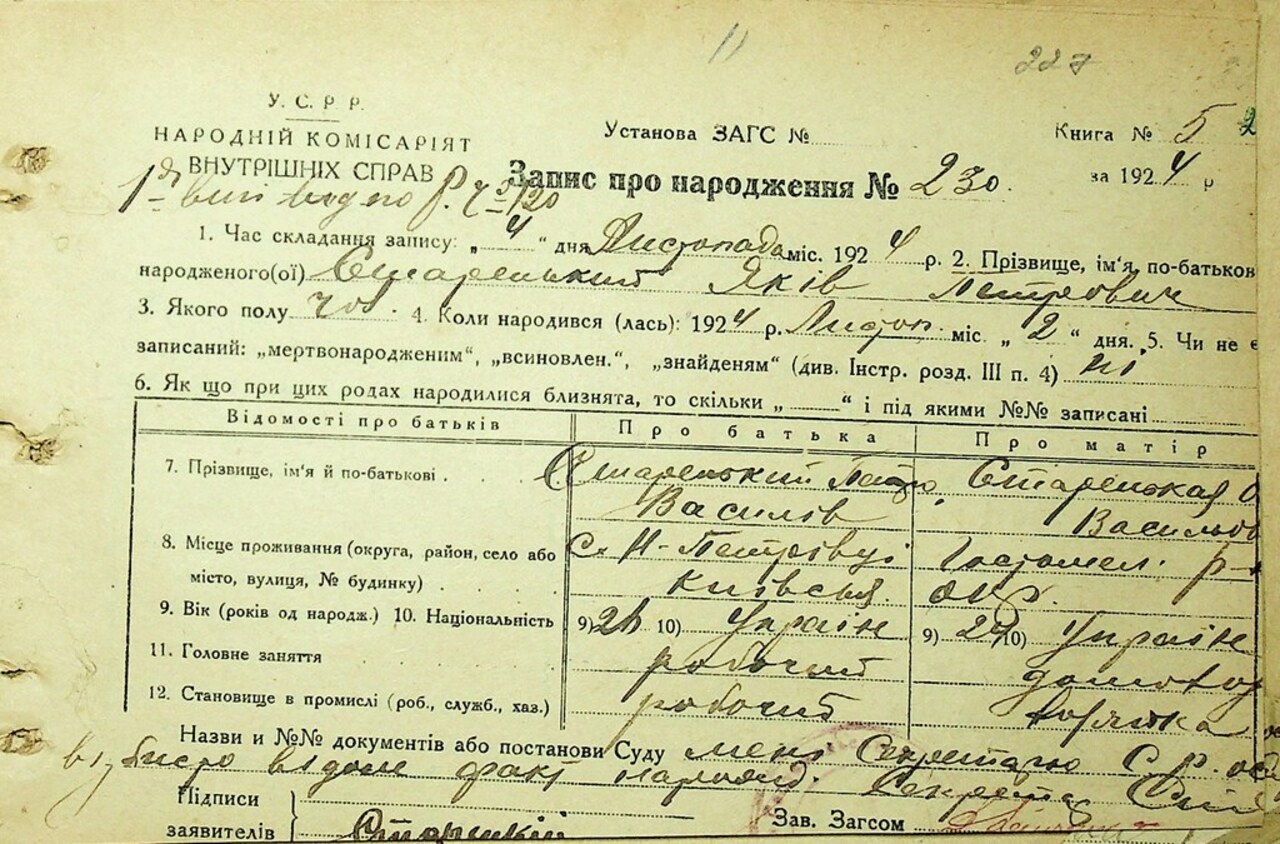 11
227
У. С. Р. Р.
НАРОДНІЙ КОМІСАРІЯТ
ВНУТРІШНІХ СПРАВ
Установа ЗАГС №
Книга № 5 2
Запис про народження № 230.
за 1924 р
1. Час складання запису: „4“ дня Листопада міс. 1924 р. 2. Прізвище, ім'я по-батьков
народженого(ої) Старенький Яків Петрович
3. Якого полу чол. 4. Коли народився (лась): 1924 р. Листоп. міс. „2“ дня. 5. Чи не є
записаний: „мертвонародженим“, „всиновлен.“, „знайденям“ (див. Інстр. розд. III п. 4) ні
6. Як що при цих родах народилися близнята, то скільки „ “ і під якими №№ записані
Відомості про батьків Про батька Про матір
7. Прізвище, ім'я й по-батькові . Старенький Петро Старенькая О
Василів Васильов
8. Місце проживання (округа, район, село або С. Н-Петрівці Гостомел. р-
місто, вулиця, № будинку) . Київськ. окр.
9. Вік (років од народж.) 10. Національність 9) 26 10) Україн 9) 24 10) Україн
11. Головне заняття робочий домогос
12. Становище в промислі (роб., служб., хаз.) робочий
Назви и №№ документів або постанови Суду мені Секретарю С. Р. осо
бисто відом факт народж. Секретар
Підписи
заявителів
Зав. Загсом